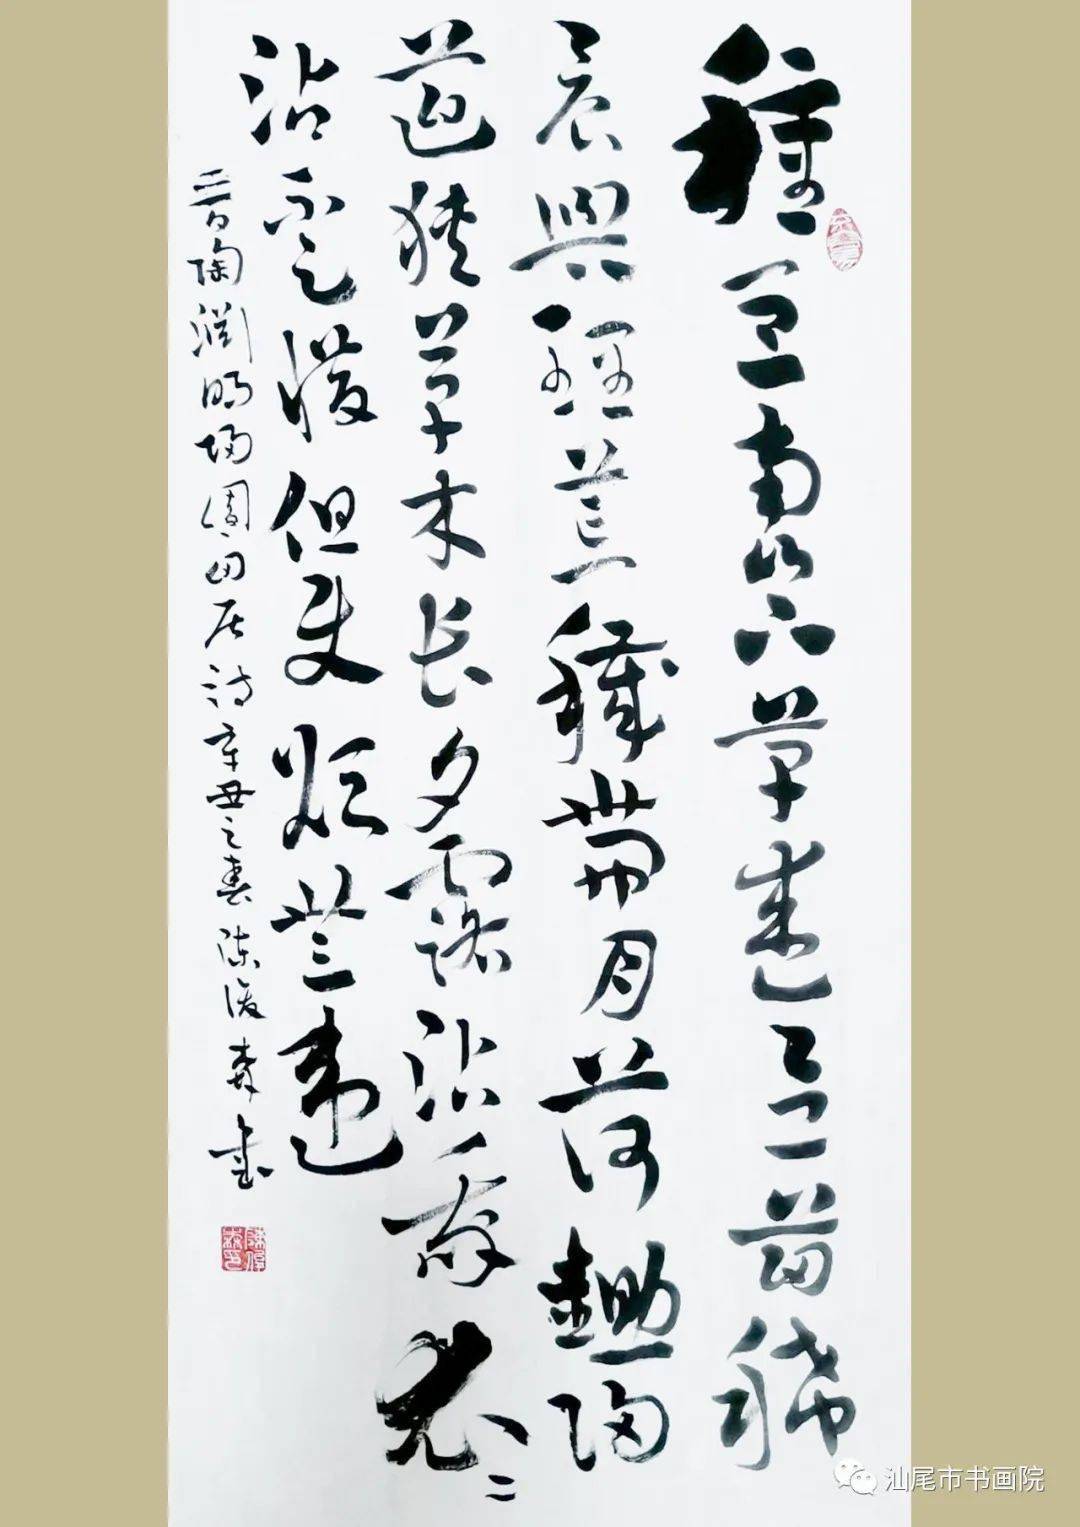 種豆南山下草盛豆苗稀
晨興理荒穢帶月荷鋤歸
道狹草木長夕露沾我衣々
沾不足惜但使願無違
晉陶淵明歸園田居詩辛丑之春陳俊森書
陳俊森印
汕尾市书画院